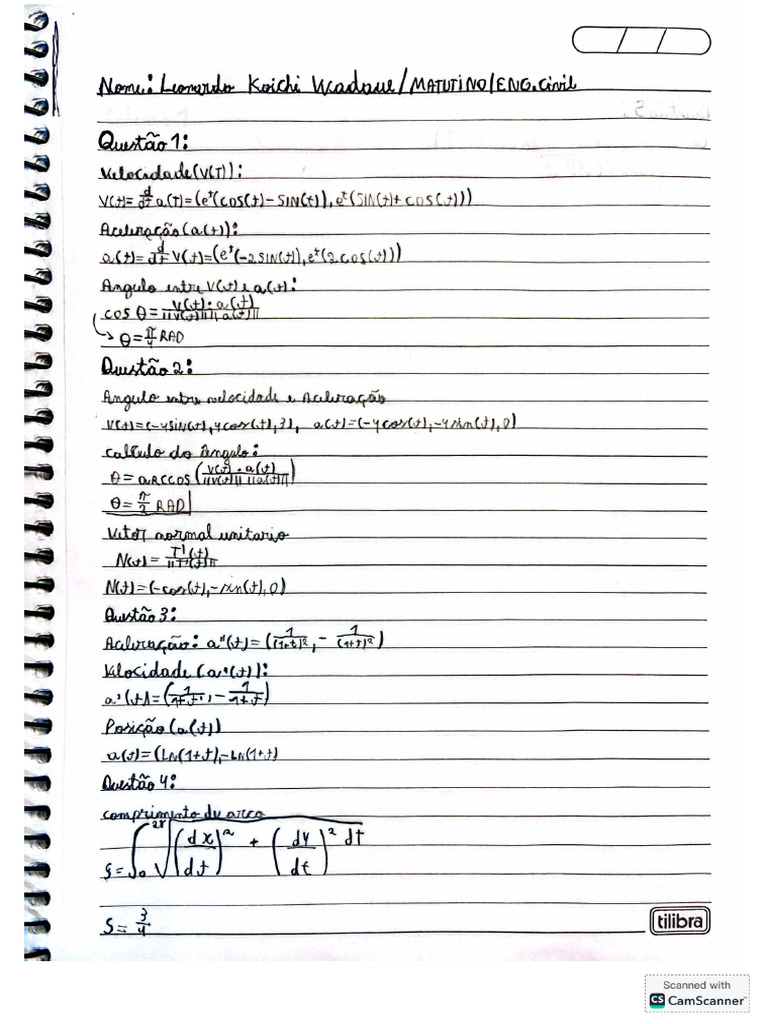 / /
Nome: Leonardo Koichi / MATUTINO / ENG. Civil
Questão 1:
Velocidade (V(T)):
V(t) = d/dt a(T) = (e^t (cos(t) - SIN(t)), e^t (SIN(t) + cos(t)))
Aceleração (a(t)):
a(t) = d/dt V(t) = (e^t (-2 SIN(t)), e^t (2 cos(t))
Angulo entre V(t) e a(t):
cos θ = V(t) · a(t) / ||V(t)|| || a(t)||
↳ θ = π/4 RAD
Questão 2:
Angulo entre velocidade e Aceleração
V(t) = (-4 SIN(t), 4 cos(t), 3), a(t) = (-4 cos(t), -4 sin(t), 0)
calculo do ângulo:
θ = ARCCOS (V(t) · a(t) / ||V(t)|| ||a(t)||)
θ = π/2 RAD
Vetor normal unitario
N(t) = T'(t) / ||T'(t)||
N(t) = (-cos(t), -sin(t), 0)
Questão 3:
Aceleração: a''(t) = (1/(1+t)², - 1/(1+t)²)
Velocidade (a'(t)):
a'(t) = (1/1+t, - 1/1+t)
Posição (a(t))
a(t) = (LN(1+t), -LN(1+t)
Questão 4:
comprimento de arco
S = ∫ √ (dx/dt)² + (dy/dt)² dt
S = 3/4
tilibra
Scanned with
CS CamScanner